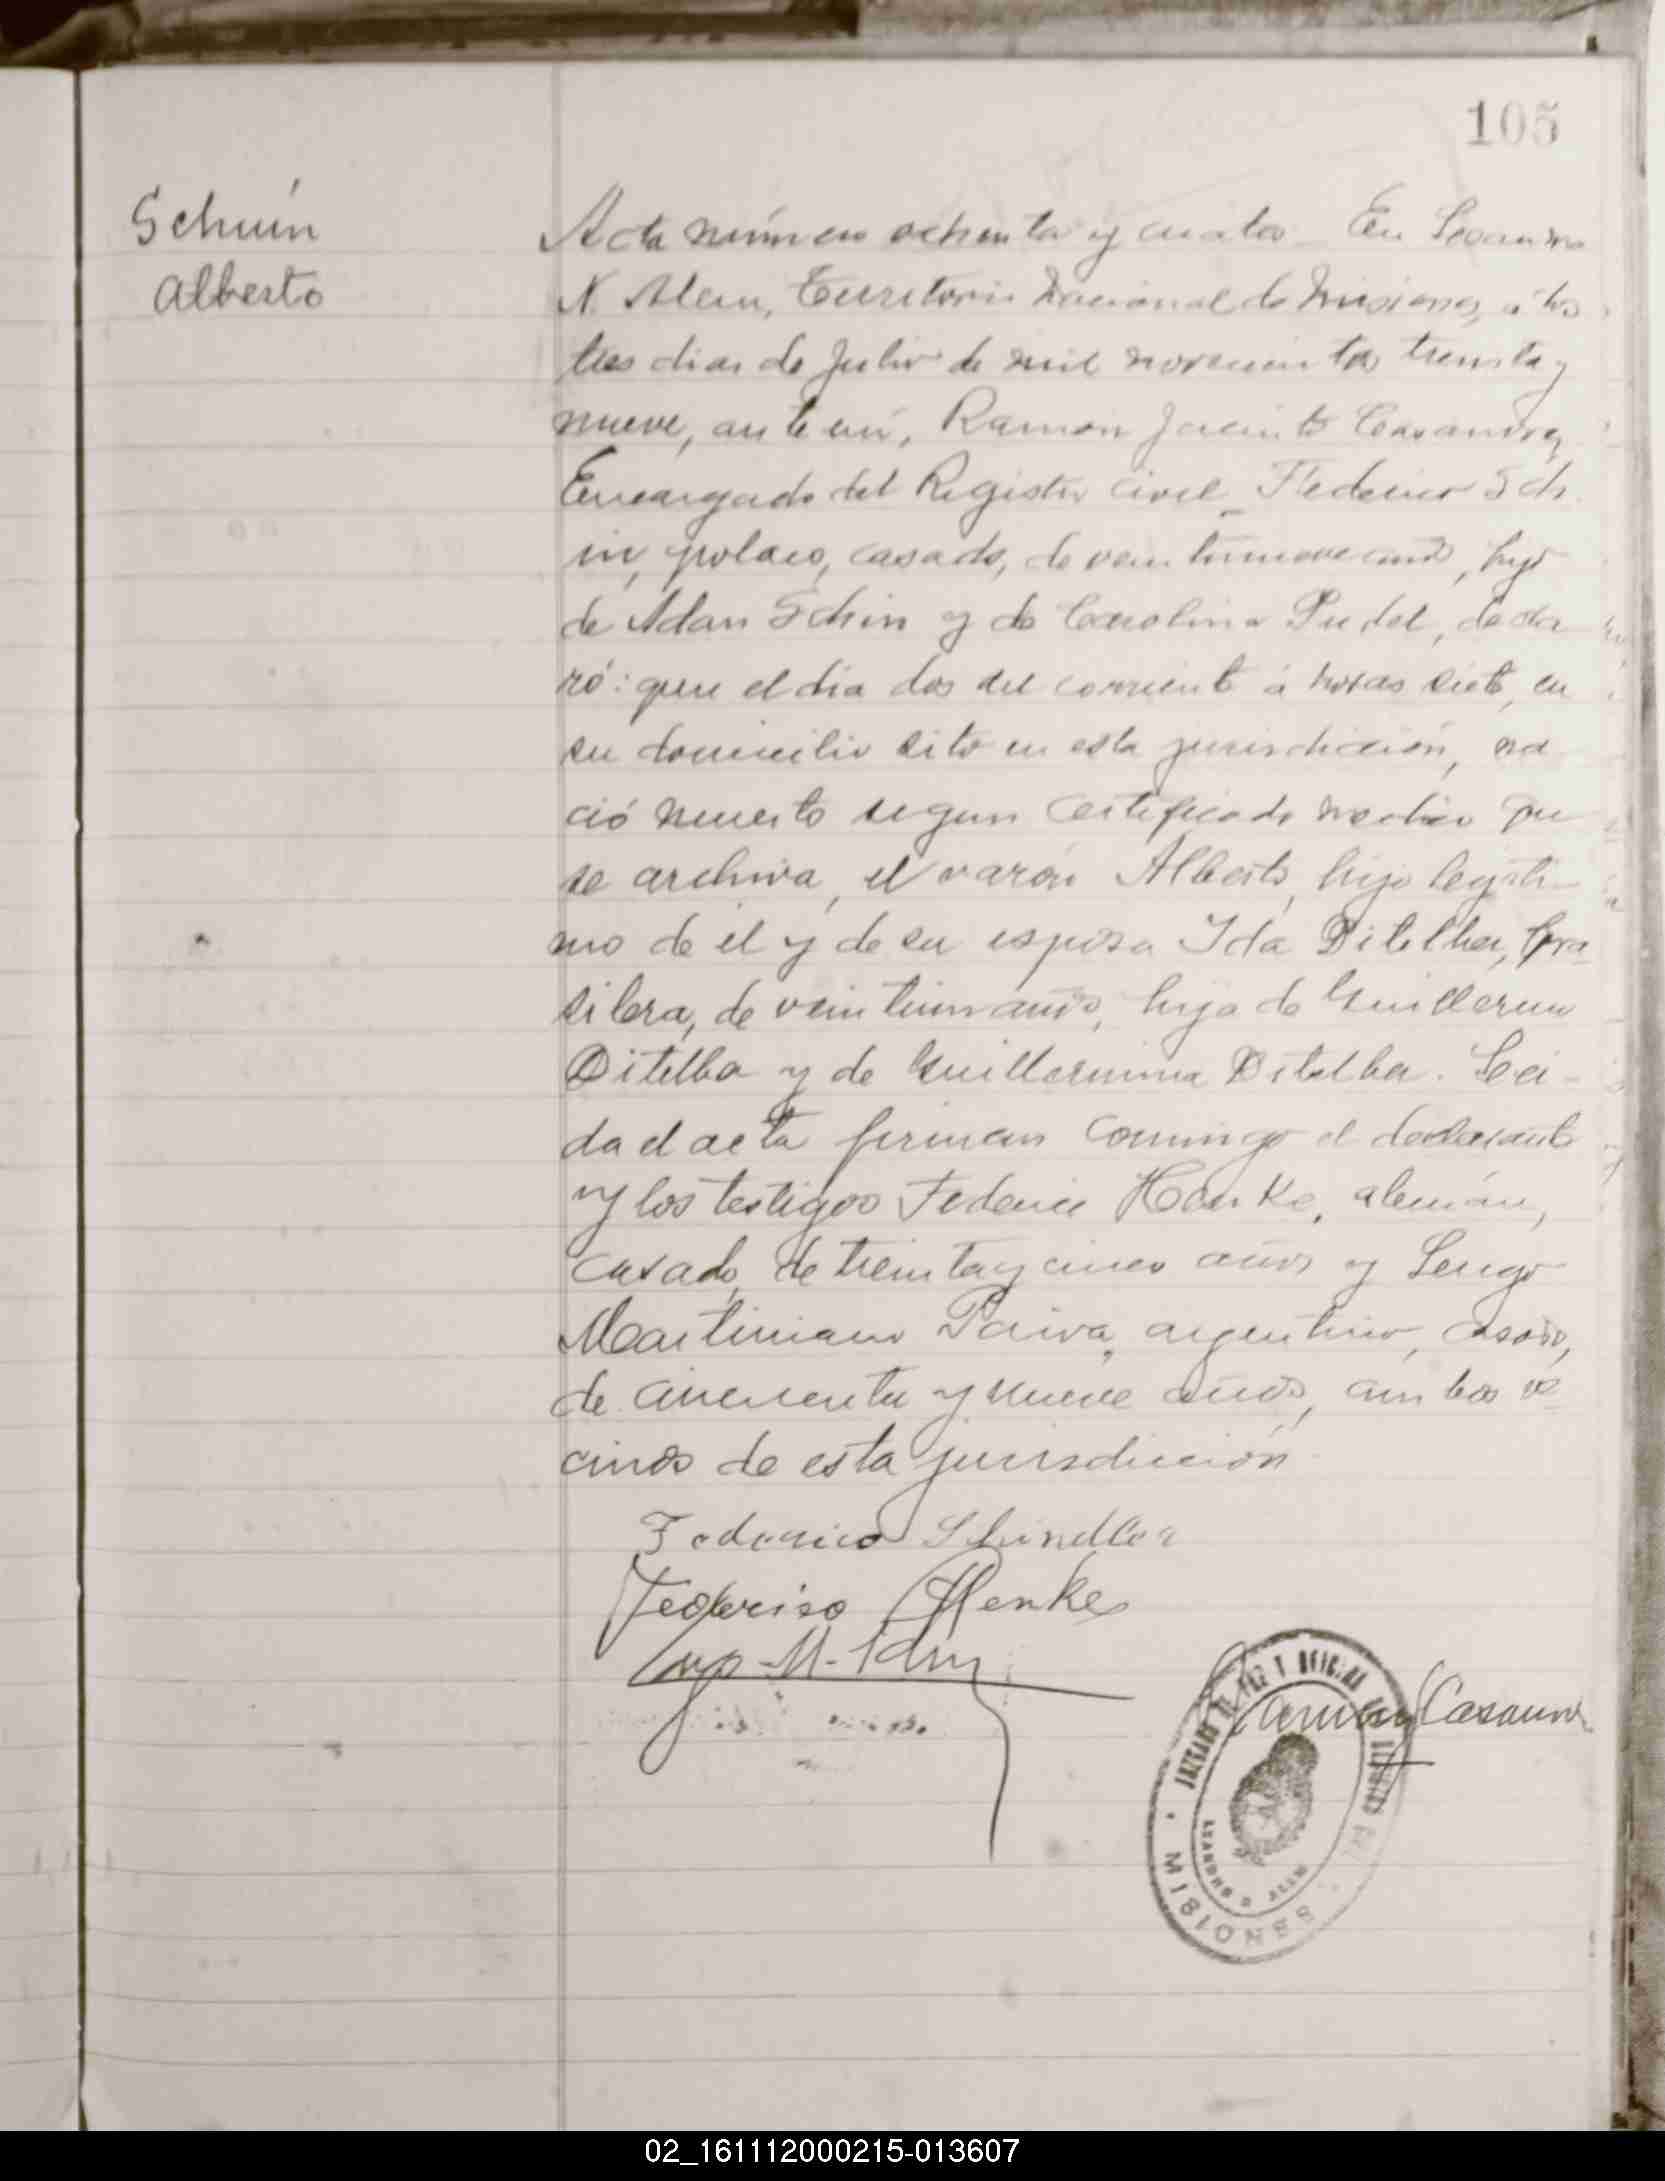 105
Schuin
Alberto
Acta número ochenta y cuatro _ En Leandro
N. Alem, Territorio Nacional de Misiones, á los
tres dias de Julio de mil novecientos treinta y
nueve, ante mí, Ramon Jacinto Casanova,
Encargado del Registro Civil _ Federico Sch
in, polaco, casado, de veintinueve años, hijo
de Adan Schin y de Carolina Pudel, decla
ró: que el día dos del corriente á horas siete, en
su domicilio sito en esta jurisdicción, na
ció muerto segun certificado medico que
se archiva, el varón Alberto, hijo legíti-
mo de él y de su esposa Ida Ditelba, bra-
silera, de veintiun años, hija de Guillermo
Ditelba y de Guillermina Ditelba. Lei-
da el acta firman conmigo el declarante
y los testigos Federico Henke, alemán,
casado, de treinta y cinco años y
Martiniano Paiva, argentino, casado,
de cincuenta y nueve años, ambos ve
cinos de esta jurisdicción
Federico Schindler
Federico Henke
M.
Ramon J Casanova
JUZGADO DE PAZ Y OFICINA DEL REGISTRO CIVIL
LEANDRO N ALEM
MISIONES
02_161112000215-013607